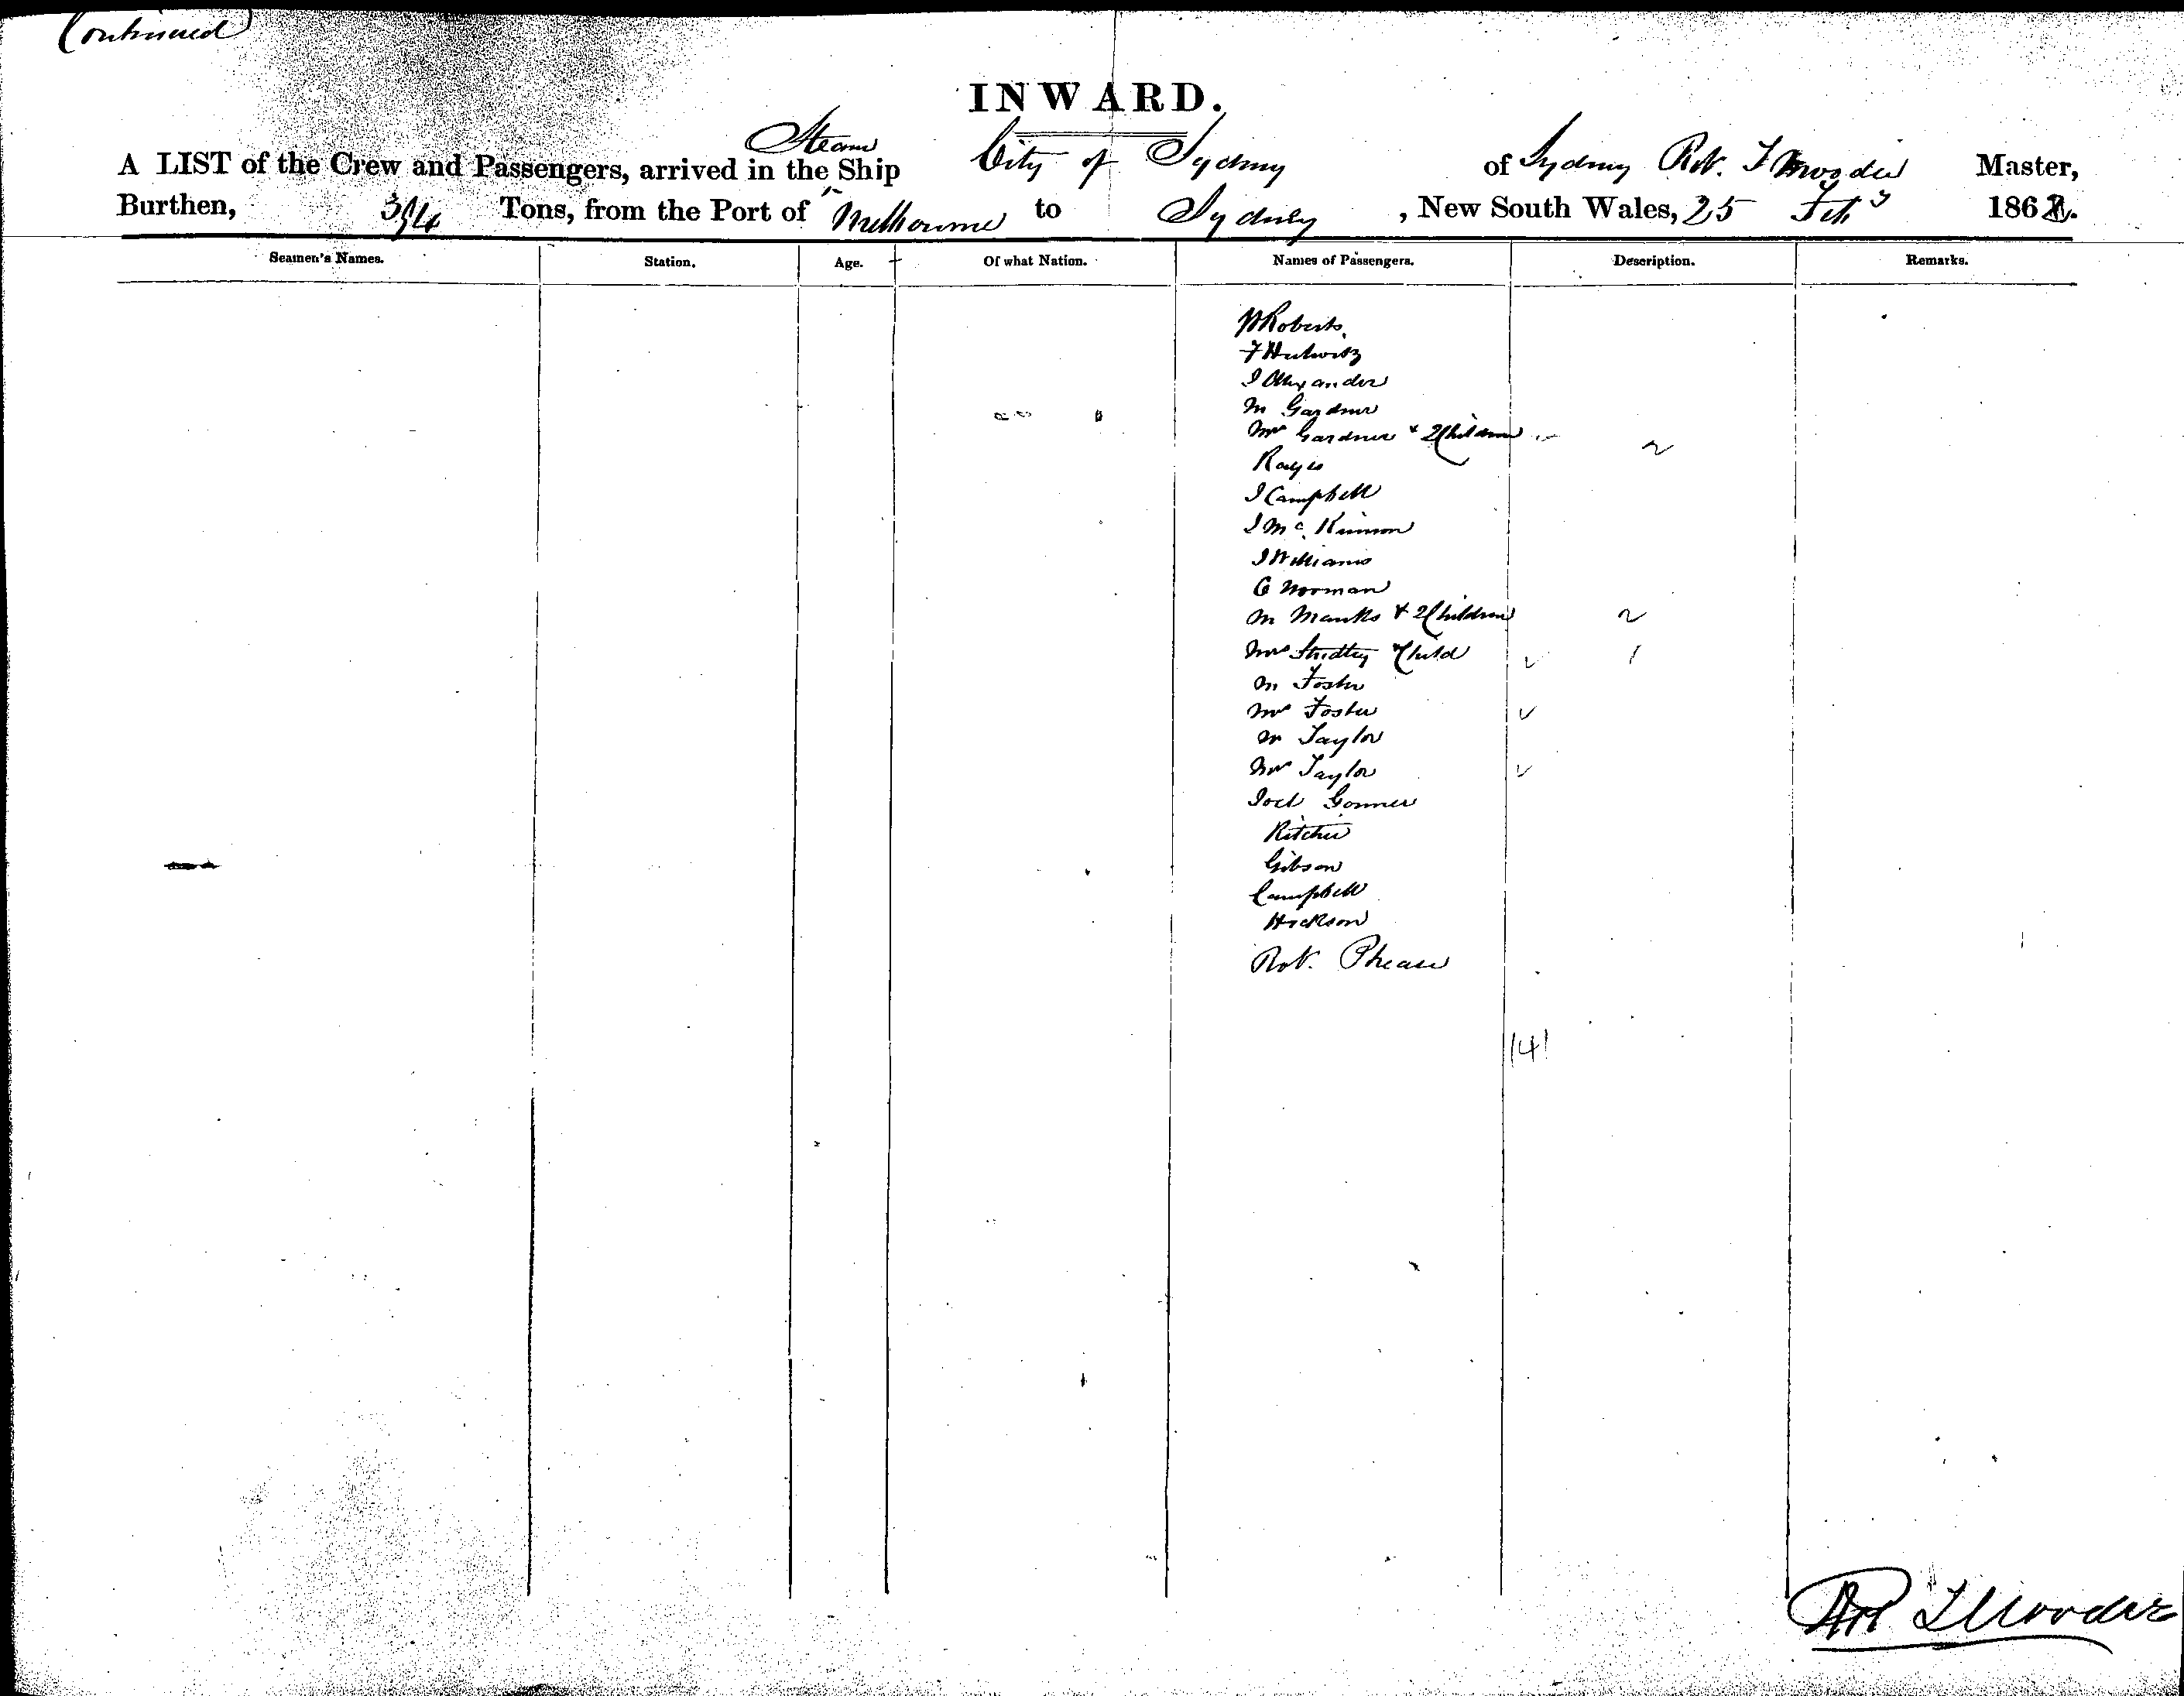 Continued
INWARD.
A LIST of the Crew and Passengers, arrived in the Steam Ship City of Sydney of Sydney Rob. T Moodie Master,
Burthen, Tons, from the Port of Melbourne to Sydney, New South Wales, 25 Feby 1862.
Seamen's Names. Station. Age. Of what Nation. Names of Passengers. Description. Remarks.
W Roberts
F Hulwitz
J Alexander
M Gardner
Mrs Gardner & 2 Children 2
Rayes
J Campbell
J Mc Kinnon
J Williams
G Norman
M Manks & 2 Children 2
Mrs Child 1
M Foster
Mrs Foster
M Taylor
Mrs Taylor
Joel Gonner
Ritchie
Gibson
Campbell
Hickson
Rob. Phease
141
Rob T Moodie